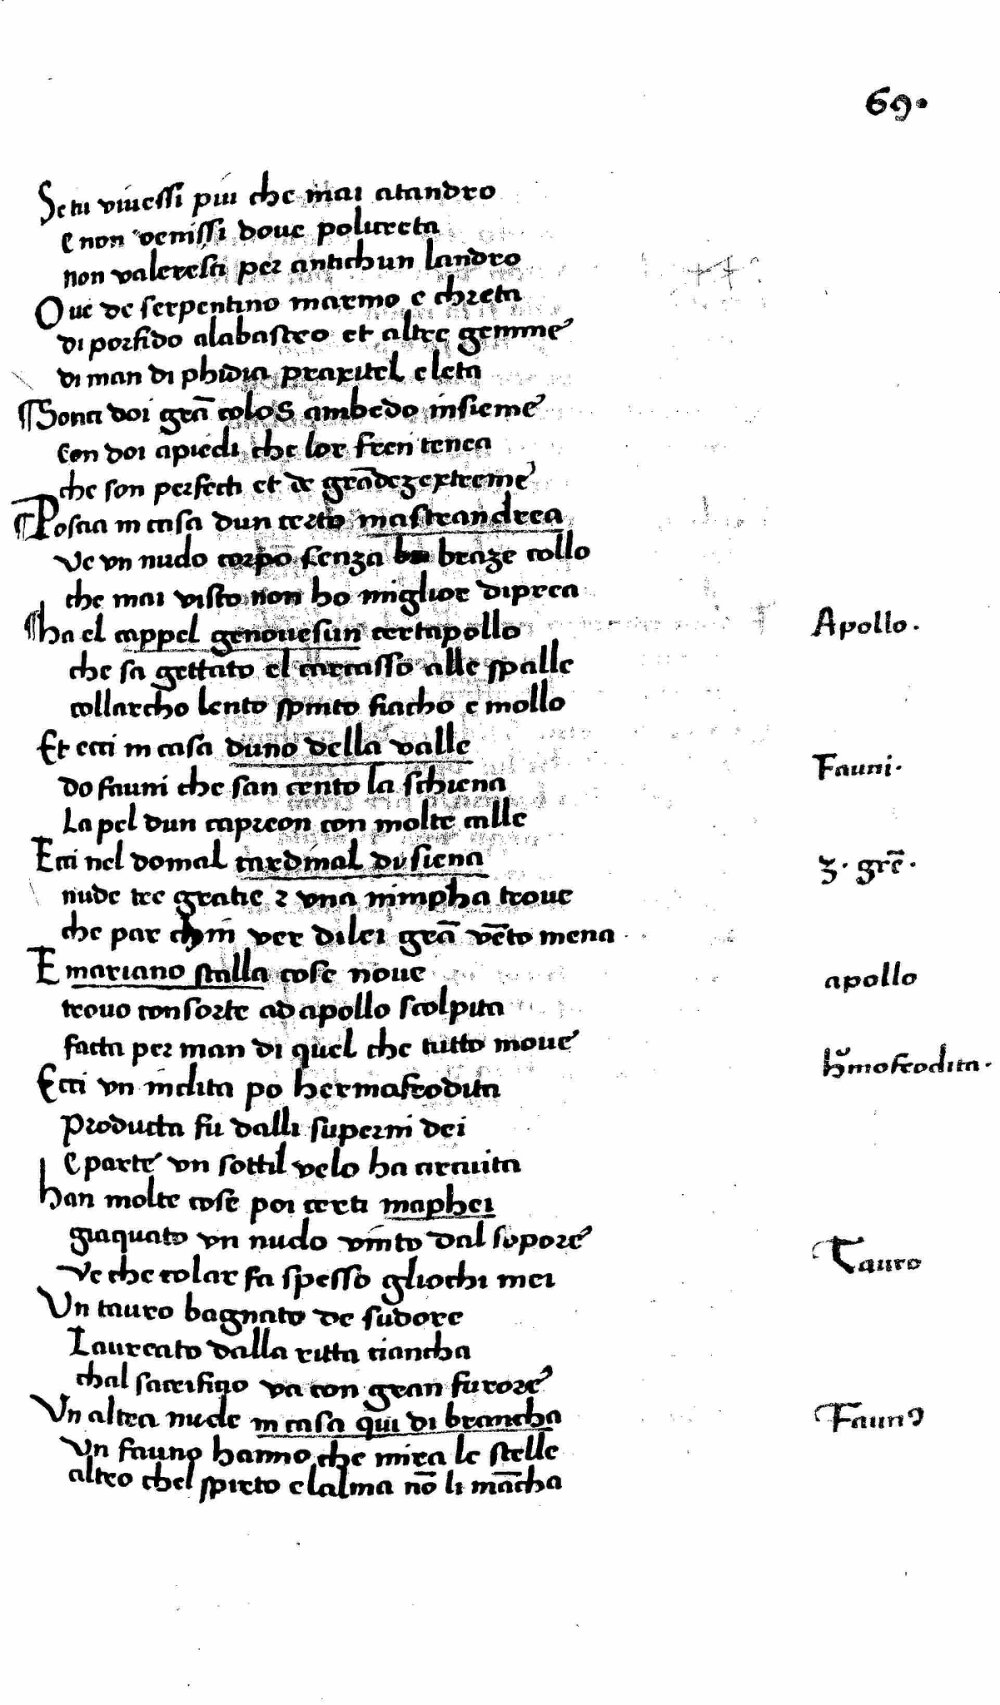 69.
Se tu viuessi piu che mai atandro
e non venissi doue policreta
non valeresti per antichun landro
Oue de serpentino marmo e chreta
di porfido alabastro et altre gemme
di man di phidia praxitel e leta
Sonci doi grã colos ambedo insieme
Con doi apiedi che lor fren tenea
che son perfecti et de grãdez extreme
Poscia in casa dun certo mastrandrea
Ve vn nudo corpo senza braze collo
che mai visto non ho miglior diprea
ha el cappel genouesun certapollo Apollo.
che sa gettato el carcasso alle spalle
collarcho lento spinto fiacho e mollo
Et ecci in casa duno della valle
do fauni che san cento la schiena Fauni.
La pel dun capreon con molte calle
Ecci nel domal cardinal di siena 3. grẽ.
nude tre gratie 2 vna nimpha troue
che par chin ver dilei grã vẽto mena
E mariano stalla cose noue apollo
trouo consorte ad apollo scolpita
facta per man di quel che tutto moue
Ecci vn indita po hermafrodita hm̃ofrodita.
Producta fu dalli superni dei
e parte vn sottil velo ha arcuita
han molte cose poi certi maphei
giaquato vn nudo vinto dal sopore
Ve che colar fa spesso gliochi mei Tauro
Vn tauro bagnato de sudore
Laureato dalla ritta ciancha
chal sacrifitio va con gran furore
Vn altra nude in casa qui di brancha Faun9
Vn fauno hanno che mira le stelle
altro chel spirto e lalma nõ li mãcha